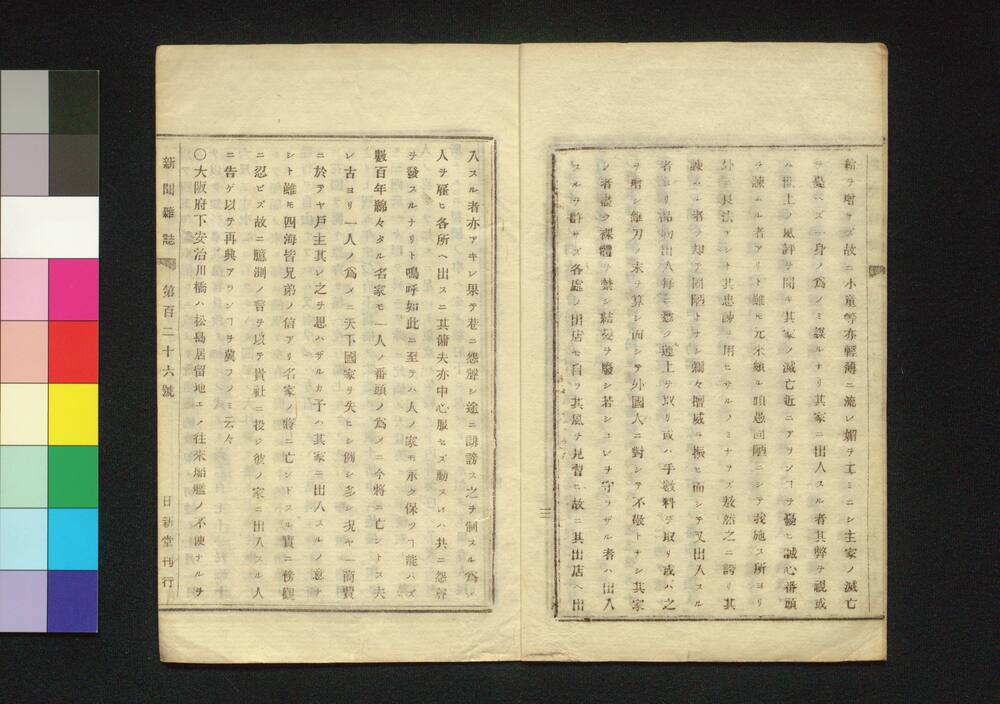 給ヲ增サズ故ニ小童等亦輕薄ニ流レ媚ヲエミニシ主家ノ滅亡
ヲ憂ヘズ一身ノ爲ノミ謀ルナリ其家ニ出入スル者其弊ヲ視或
ハ世上ノ風評ヲ聞キ其家ノ滅亡近ニアランヿヲ憂ヒ誠心番頭
ヲ諫ムル者アリト雖モ元來頑ル頭愚固陋ニシテ我施ス所ヨリ
外ニ良法ナシト其忠諫ヲ用ヒサルノミナラズ敖然之ニ誇リ其
諫ムル者ヲ却テ固陋トナシ彌々增威ヲ振ヒ而シテ又出入スル
者ヨリ品物出入每ニ悉ク運上ヲ取リ或ハ手數料ヲ取リ或ハ之
ヲ增シ錐刀ノ末ヲ算シ而シテ外國人ニ對シテ不敬トナシ其家
ノ者盡ク裸體ヲ禁シ結髮ヲ廢シ若シコレヲ守ラザル者ハ出入
スルヲ許サズ各處ノ出店モ自ヲ其風ヲ見習ヒ故ニ其出店ヘ出
三
入スル者亦アキレ果テ巷ニ怨聲シ途ニ誹謗ス之ヲ制スル爲ノ
人ヲ雇ヒ各所ヘ出スニ其傭夫亦中心服セズ動スレハ共ニ怨聲
ヲ發スルナリト嗚呼如此ニ至テハ人ノ家モ永ク保ツヿ能ハズ
數百年綿々タル名家モ一人ノ番頭ノ爲ノニ今將ニ亡ントス夫
レ古ヨリ一人ノ爲メニ天下國家ヲ失ヒシ例シ多シ况ヤ一商賈
ニ於テヤ戶主其レ之ヲ思ハザルカ予ハ其家ニ出入スルノ意ナ
シト雖モ四海皆兄弟ノ信アリ名家ノ將ニ亡ントスル實ニ傍觀
ニ忍ビズ故ニ臆測ノ言ヲ以テ貴社ニ投ジ彼ノ家ニ出入スル人
ニ告ゲ以テ再興アランヿヲ冀フノミ云々
○大阪府下安治川橋ハ松島居留地エノ往來船艦ノ不便ナルヲ
新聞雜誌 第百二十六號 日新堂刊行